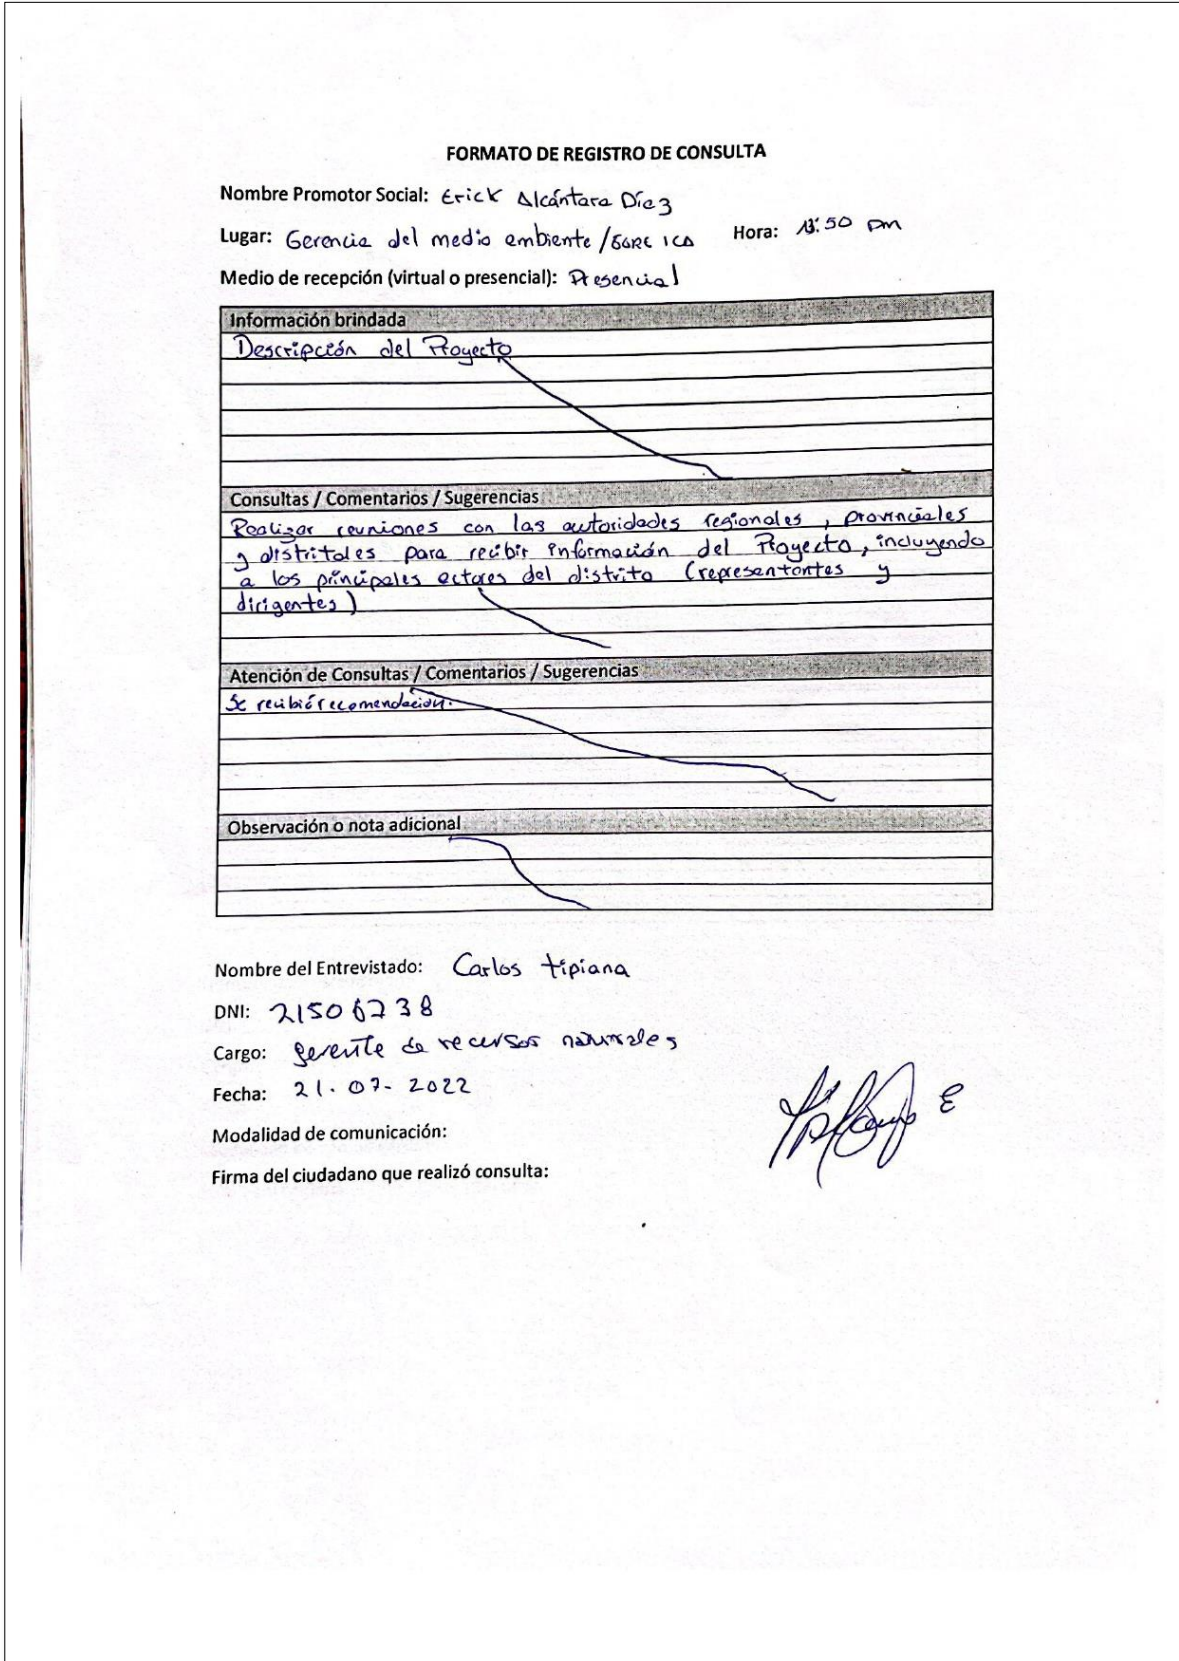 FORMATO DE REGISTRO DE CONSULTA
Nombre Promotor Social: Erick Alcántara Díaz
Lugar: Gerencia del medio ambiente / GORE ICA Hora: :50 pm
Medio de recepción (virtual o presencial): Presencial
Información brindada
Descripción del Proyecto
Consultas / Comentarios / Sugerencias
Realizar reuniones con las autoridades regionales, provinciales
y distritales para recibir información del Proyecto, incluyendo
a los principales actores del distrito (representantes y
dirigentes)
Atención de Consultas / Comentarios / Sugerencias
Se recibió recomendación.
Observación o nota adicional
Nombre del Entrevistado: Carlos tipiana
DNI: 21506738
Cargo: gerente de recursos naturales
Fecha: 21-07-2022
Modalidad de comunicación:
Firma del ciudadano que realizó consulta: